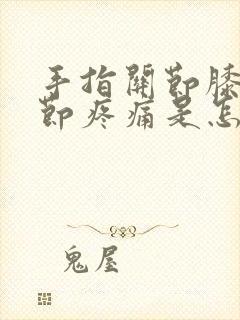 手指關節膝
節疼痛是怎
鬼屋